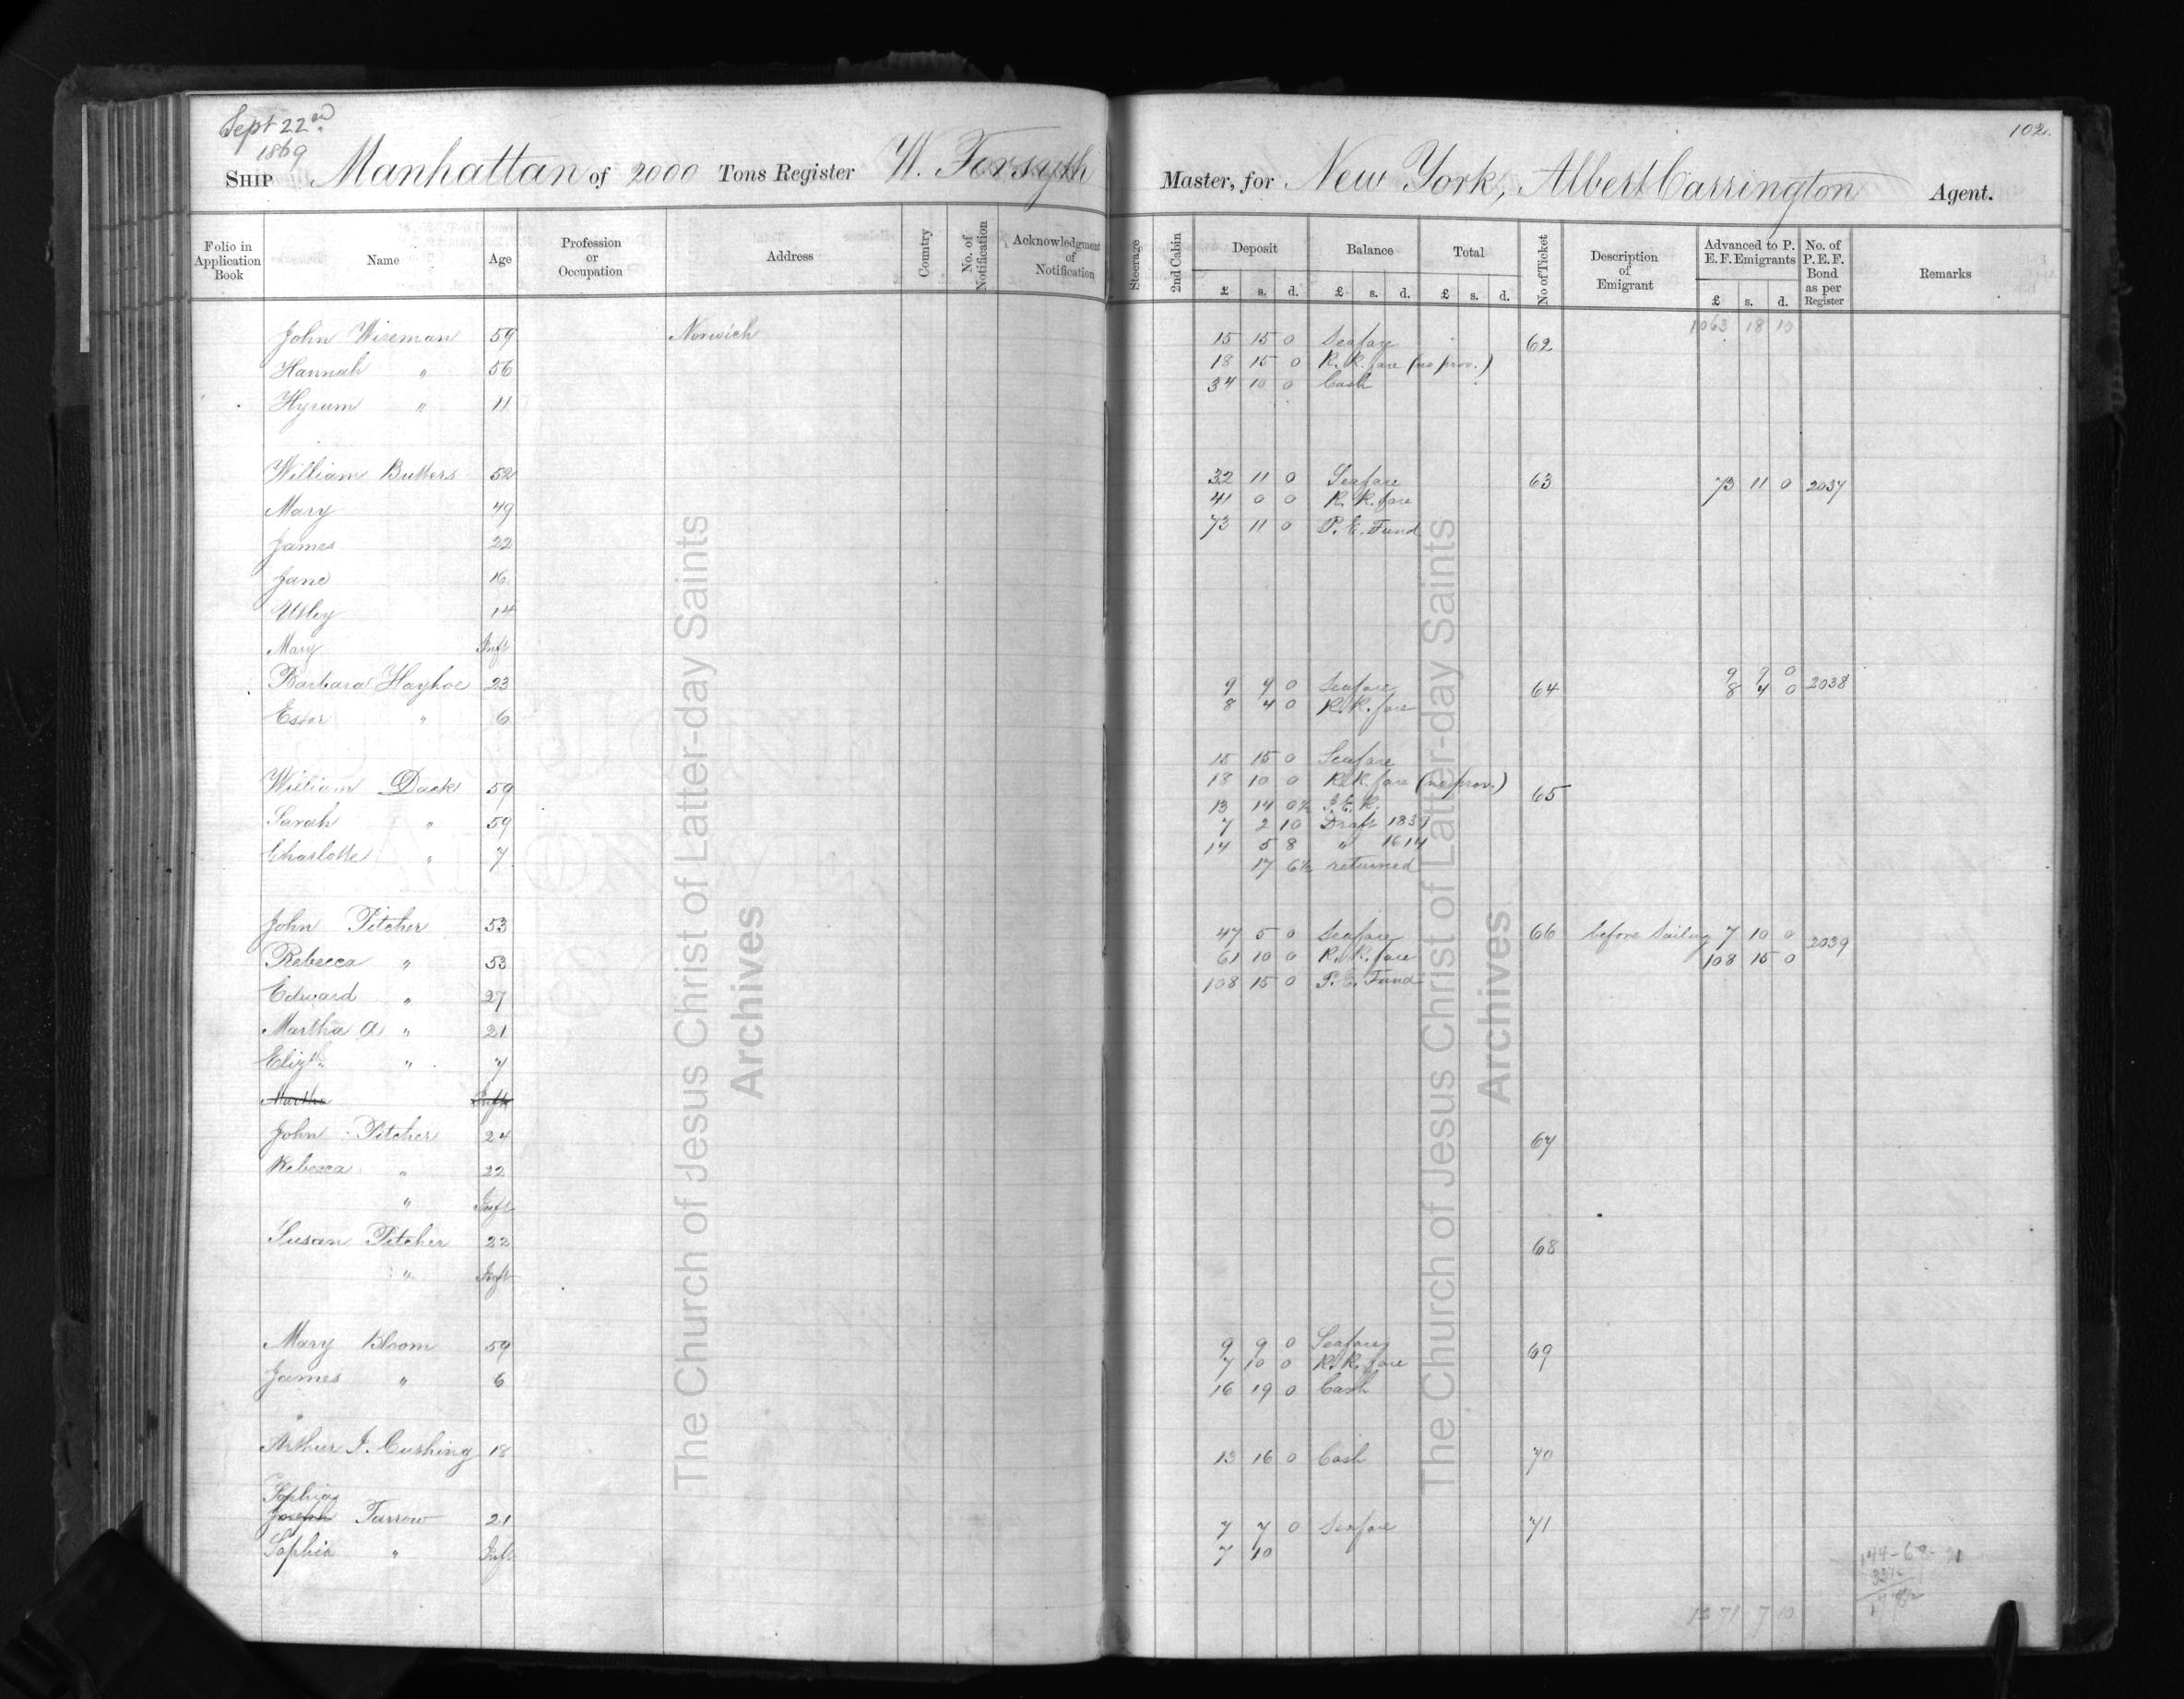 Sept 22nd
1869
102.
SHIP Manhattan of 2000 Tons Register W. Forsyth Master, for New York, Albert Carrington Agent.
Folio in Application Book | Name | Age | Profession or Occupation | Address | Country | No. of Notification | Acknowledgment of Notification | Steerage | 2nd Cabin | Deposit £ s. d. | Balance £ s. d. | Total £ s. d. | No of Ticket | Description of Emigrant | Advanced to P. E. F. Emigrants £ s. d. | No. of P. E. F. Bond as per Register | Remarks
1063 18 10
John Wiseman 59 Norwich 15 15 0 Seafare 62
Hannah " 56 18 15 0 R. R. fare (no prov.)
34 10 0 Cash
Hyrum " 11
William Butters 52 32 11 0 Seafare 63 73 11 0 2037
Mary 49 41 0 0 R. R. fare
James 22 73 11 0 P. E. Fund
Jane 16
14
Mary Inft
Barbara Hayhoe 23 9 9 0 Seafare 64 9 9 0
8 4 0 2038
Ester " 6 8 4 0 R. R. fare
15 15 0 Seafare
William Dack 59 18 10 0 R. R. fare (no prov.) 65
13 14 0½
Sarah " 59 7 2 10 Draft
Charlotte " 7 14 5 8 " 1614
17 6½ returned
John Pitcher 53 47 5 0 Seafare 66 before sailing 7 10 0 2039
Rebecca " 53 61 10 0 R. R. fare 108 15 0
Edward " 27 108 15 0 P. E. Fund
Martha A " 21
Elizth " 7
Martha Inft
John Pitcher 24 67
Rebecca " 22
" Inft
Susan Pitcher 22 68
" Inft
Mary Bloom 59 9 9 0 Seafare 69
7 10 0 R. R. fare
James " 6 16 19 0 Cash
Arthur J. Cushing 18 13 16 0 Cash 70
Sophia
Joseph Farrow 21 7 7 0 Seafare 71
Sophia " Inft 7 10
1371 7 10
The Church of Jesus Christ of Latter-day Saints
Archives
The Church of Jesus Christ of Latter-day Saints
Archives